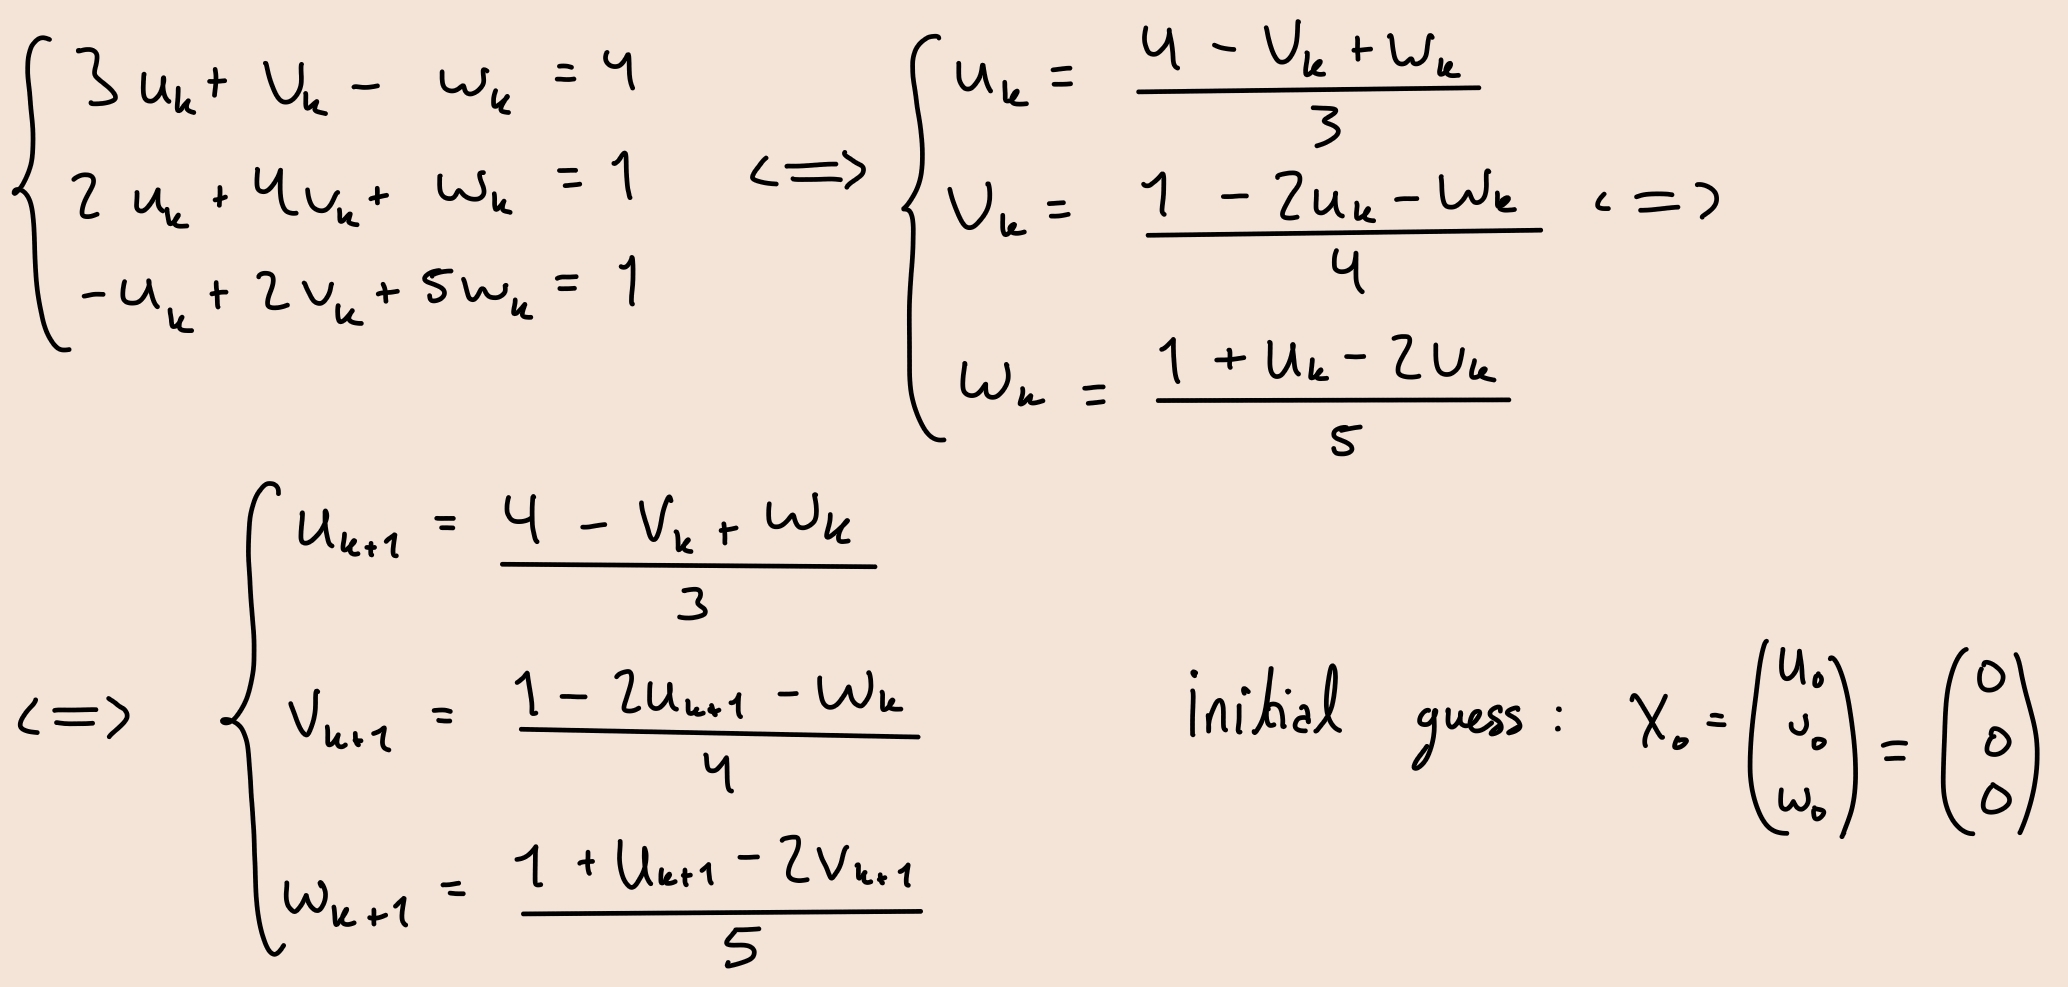 3u_k + v_k - w_k = 4
2u_k + 4v_k + w_k = 1
-u_k + 2v_k + 5w_k = 1
<=>
u_k = (4 - v_k + w_k) / 3
v_k = (1 - 2u_k - w_k) / 4 <=>
w_k = (1 + u_k - 2v_k) / 5
<=>
u_{k+1} = (4 - v_k + w_k) / 3
v_{k+1} = (1 - 2u_{k+1} - w_k) / 4
w_{k+1} = (1 + u_{k+1} - 2v_{k+1}) / 5
initial guess : x_0 = (u_0 v_0 w_0) = (0 0 0)